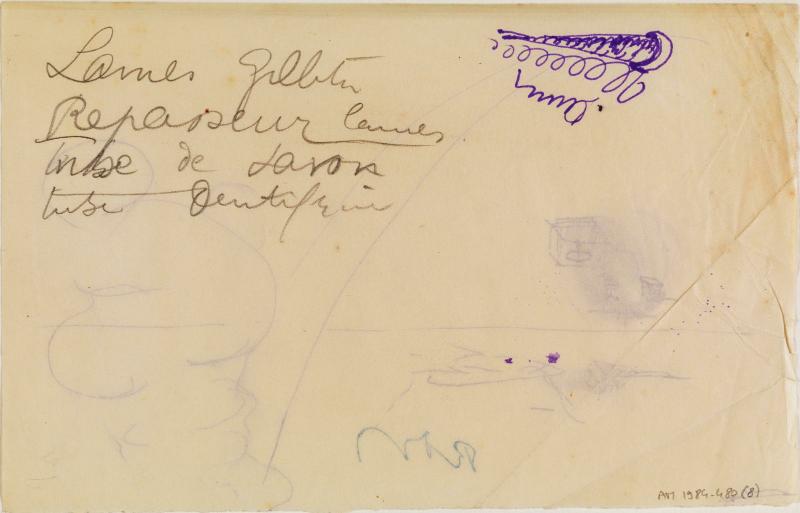 Lames Gillette
Repasseur lames
tube de savon
tube Dentifrice
AM 1984-480 (8)